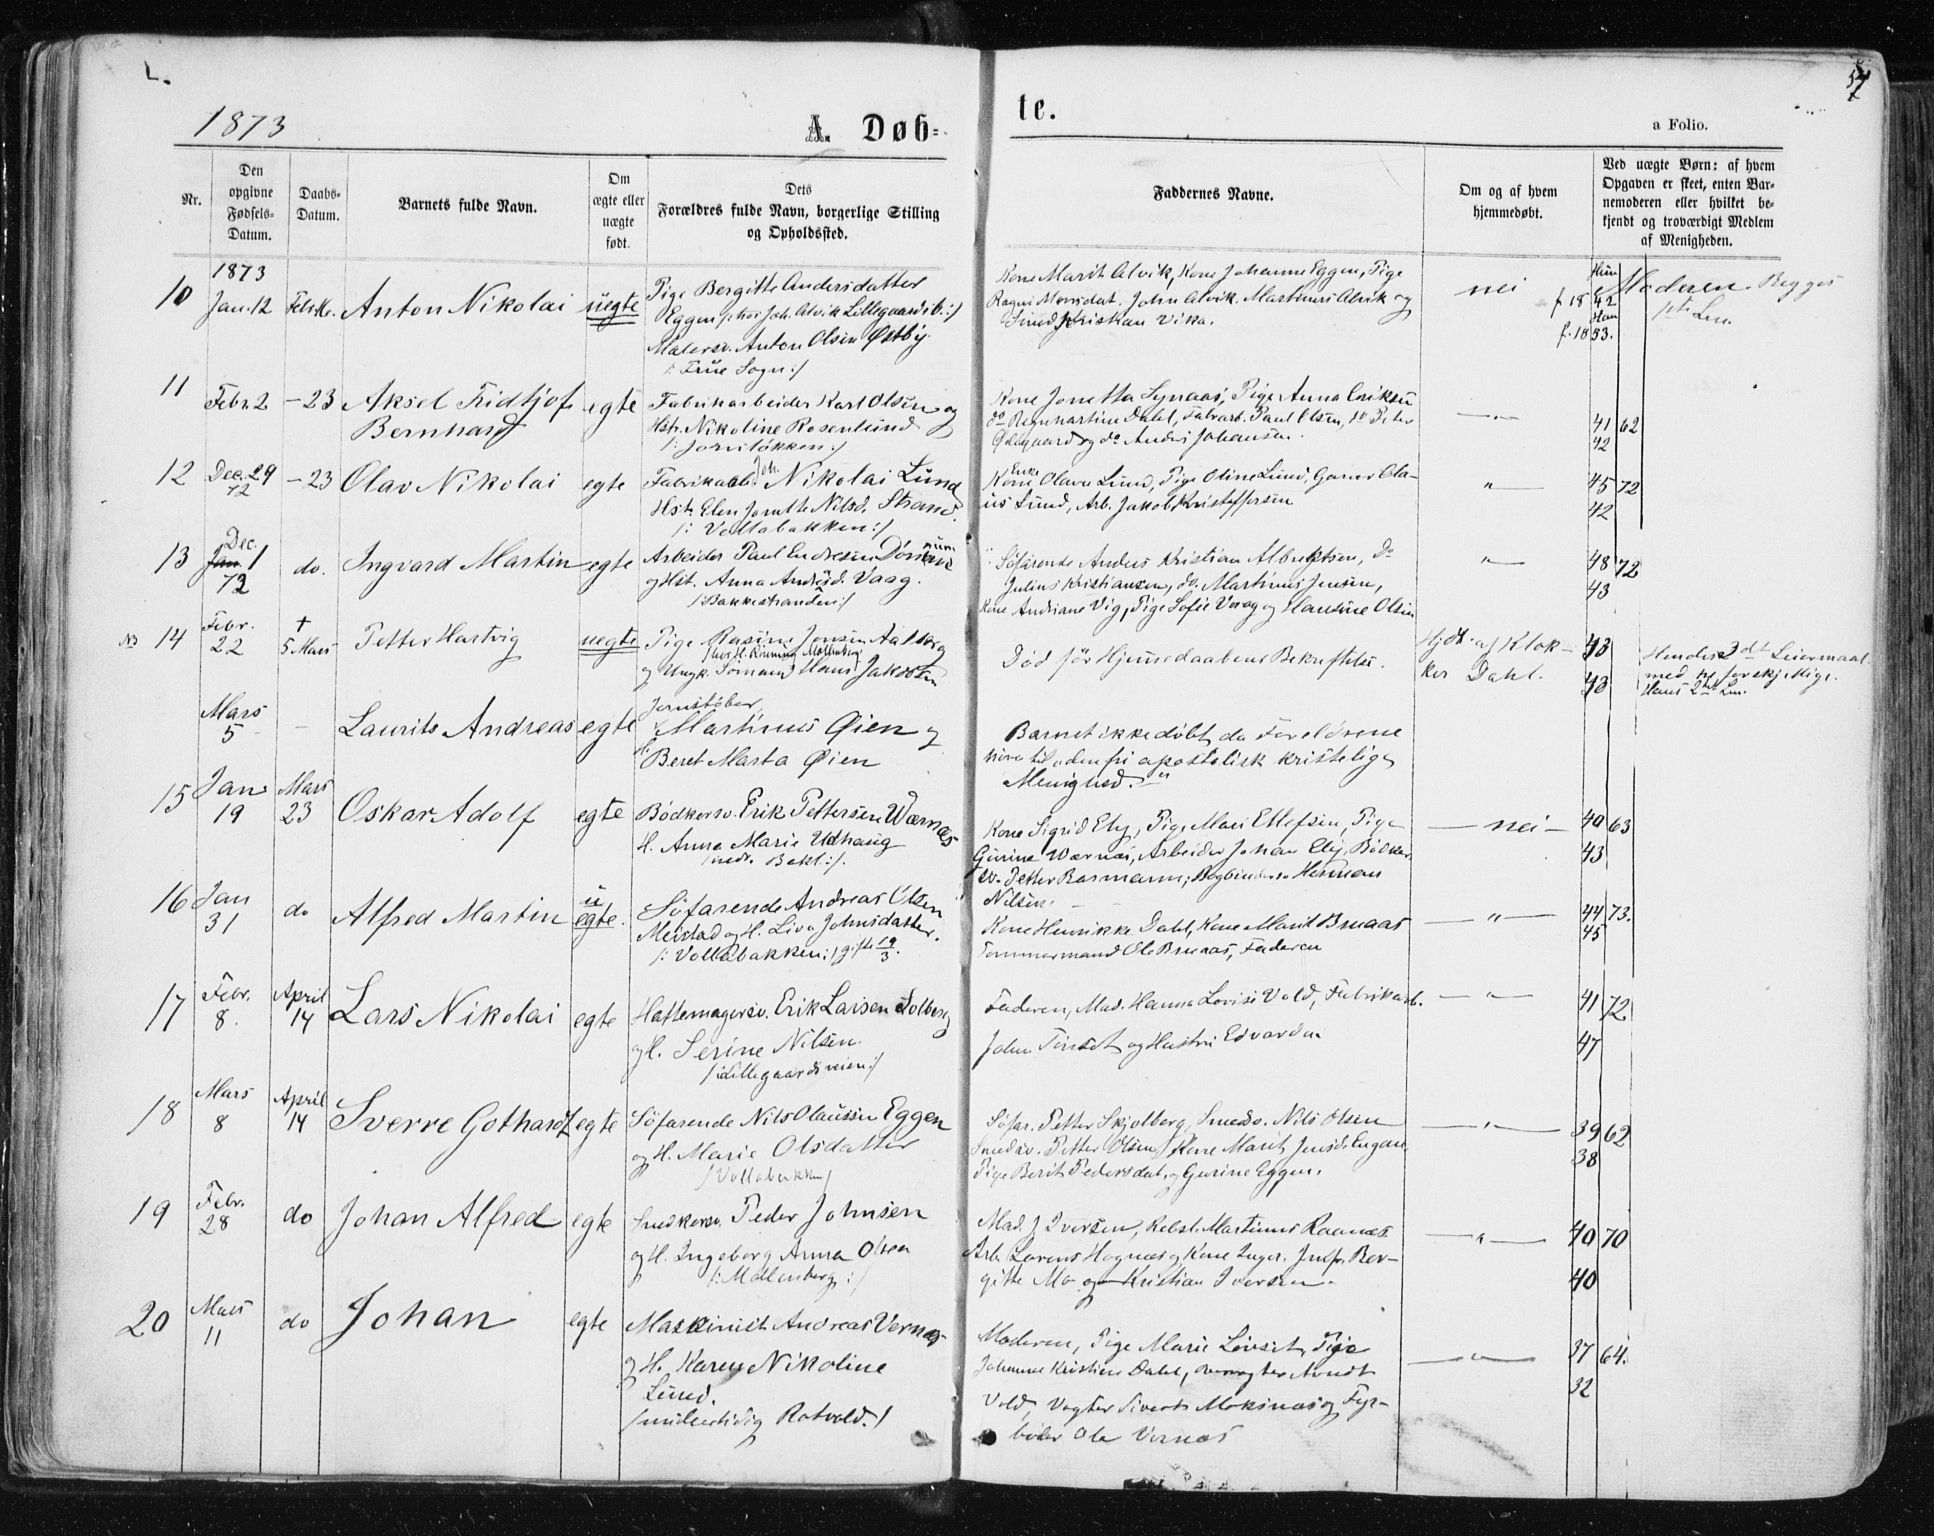 57
1873
A. Døb-
te.
a Folio.
Nr.
Den opgivne Fødsels-Datum.
Daabs-Datum.
Barnets fulde Navn.
Om ægte eller uægte født.
Dets Forældres fulde Navn, borgerlige Stilling og Opholdssted.
Faddernes Navne.
Om og af hvem hjemmedøbt.
Ved uægte Børn: af hvem Opgaven er skeet, enten Barnemoderen eller hvilket bekjendt og troværdigt Medlem af Menigheden.
1873
10 Jan. 12 Anton Nikolai uegte
Pige Bergitte Andersdatter
Eggen /: hos Joh. Alvik Lillegaardsb:/
Malersv. Anton Olsen Østby
/: Frue Sogn:/
Kone Marit Alvik, Kone Johanne Eggen, Pige
Ragni Monsdat. John Alvik. Martinus Alvik og
Smed Kristian Vika.
nei
Hun
f. 1842
Han
f. 1853.
Moderen Begges
1ste Lm.
11 Febr. 2 - 23 Aksel Fridtjof
Bernhard
egte
Fabrikarbeider Karl Olsen og
Hstr. Nikoline Rosenlund
Kone Jonetta Synaas, Pige Anna Eriksen
do Regnhartine Dahl, Fabrarb. Paul Olsen, do Peter
Ødegaard og do Anders Johansen.
41 62
42
12 Dec. 29 72 - 23 Olav Nikolai egte
Fabrikarb. Joh. Nikolai Lund
Hst. Elen Jonette Nilsd. Strand.
/: Vollabakken:/
Enke
Kone Olava Lund, Pige Oline Lund, Garver Ola-
us Lund, Arb. Jakob Kristoffersen
"
45 72
42
13 Dec. 1 72 do. Ingvard Martin egte
Arbeider Paul Endresen
og Hst. Anna Andrsd. Vaag.
/: Bakkestranden:/
Søfarende Anders Kristian Albregtsen, Do
Julius Kristiansen, do. Martinus Jensen,
Kone Andriane Vig, Pige Sofie Vaag og Hansine Olsen
"
48 72
43
N3 14 Febr. 22 + 5 Mars Petter Hartvig uegte
Pige Rasine Jensen Aalberg
og Ungk. Sømand Hans Jakobsen
Død før Hjemmedaabens Bekræftelse.
Hjdt. af Klok-
ker Dahl.
43
43
Hendes 3dt Leiermaal
med ny forskj. Mige.
Hans 2det Lm.
Mars 5 - Laurits Andreas egte
Jernstøber
Martinus Øien og
Beret Marta Øien
Barnet ikke døbt da Forældrene
hører til den fri apostolisk kristelige
Menighed."
15 Jan 19 Mars 23 Oskar Adolf egte
Bødkersv. Erik Pettersen Wærnæs
H. Anna Marie Udhaug
/nedr. Bakl:/.
Kone Sigrid Ely, Pige Mari Ellefsen, Pige
Gurine Værnæs, Arbeider Johan Ely, Bødker-
sv. Petter Basmann, Bogbindersv Herman
Nilsen.
— nei —
40 63
43
16 Jan 31 do Alfred Martin u
egte.
Søfarende Andreas Olsen
Meistad og H. Liva Johnsdatter.
/: Vollabakken:/ gift 19/3.
Kone Henrikke Dahl, Kone Marit Bruaas
Tømmermand Ole Bruaas, Faderen
"
44 73.
45
17 Febr. 8. April 14 Lars Nikolai egte
Hattemagersv. Erik Larsen Solberg
og H. Serine Nilsen.
/: Lillegaardsveien:/
Faderen, Mad. Hanna Lovise Vold, Fabrikarb.
John Tønset og Hustru Edvarda
"
41 72
47
18 Mars 8 April 14 Sverre Gothard egte
Søfarende Nils Olaussen Eggen
og H. Marie Olsdatter
/Vollabakken/
Søfar. Petter Skjolberg, Smedsv. Nils Olsen
Smedsv. Petter Olsen, Kone Marit Jensd. Engan,
Pige Berit Pedersdat. og Gurine Eggen.
"
39 62
38
19 Febr. 28 do Johan Alfred egte
Snedkersv. Peder Johnsen
og H. Ingeborg Anna Olsen
/: Møllenberg:/
Mad. J Iversen, Rebsl. Martinus Raanæs
Arb. Lorens Hognæs og Kone Inger, Jnfr. Ber-
gitte Mo og Kristian Iversen.
"
40 70
40
20 Mars 11 do Johan egte
Maskinist Andreas Vernæs
og H. Karen Nikoline
Lund.
/midlertidig Rotvold./
Moderen, Pige Marie Løvset, Pige
Johanna Kristine Dahl, Overvogter Arndt
Vold, Vogter Sivert Moksnæs og Fyr-
bøder Ole Vernæs
"
37 64.
32